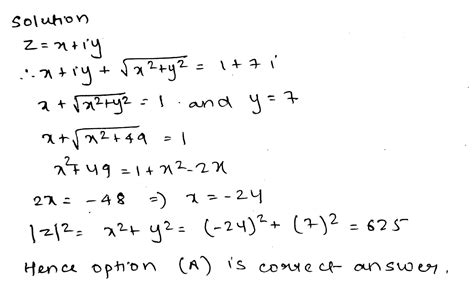 Solution
Z = x + iy
∴ x + iy + √x²+y² = 1 + 7i
x + √x²+y² = 1 and y = 7
x + √x²+49 = 1
x²+49 = 1 + x² - 2x
2x = -48 => x = -24
|z|² = x² + y² = (-24)² + (7)² = 625
Hence option (A) is correct answer.